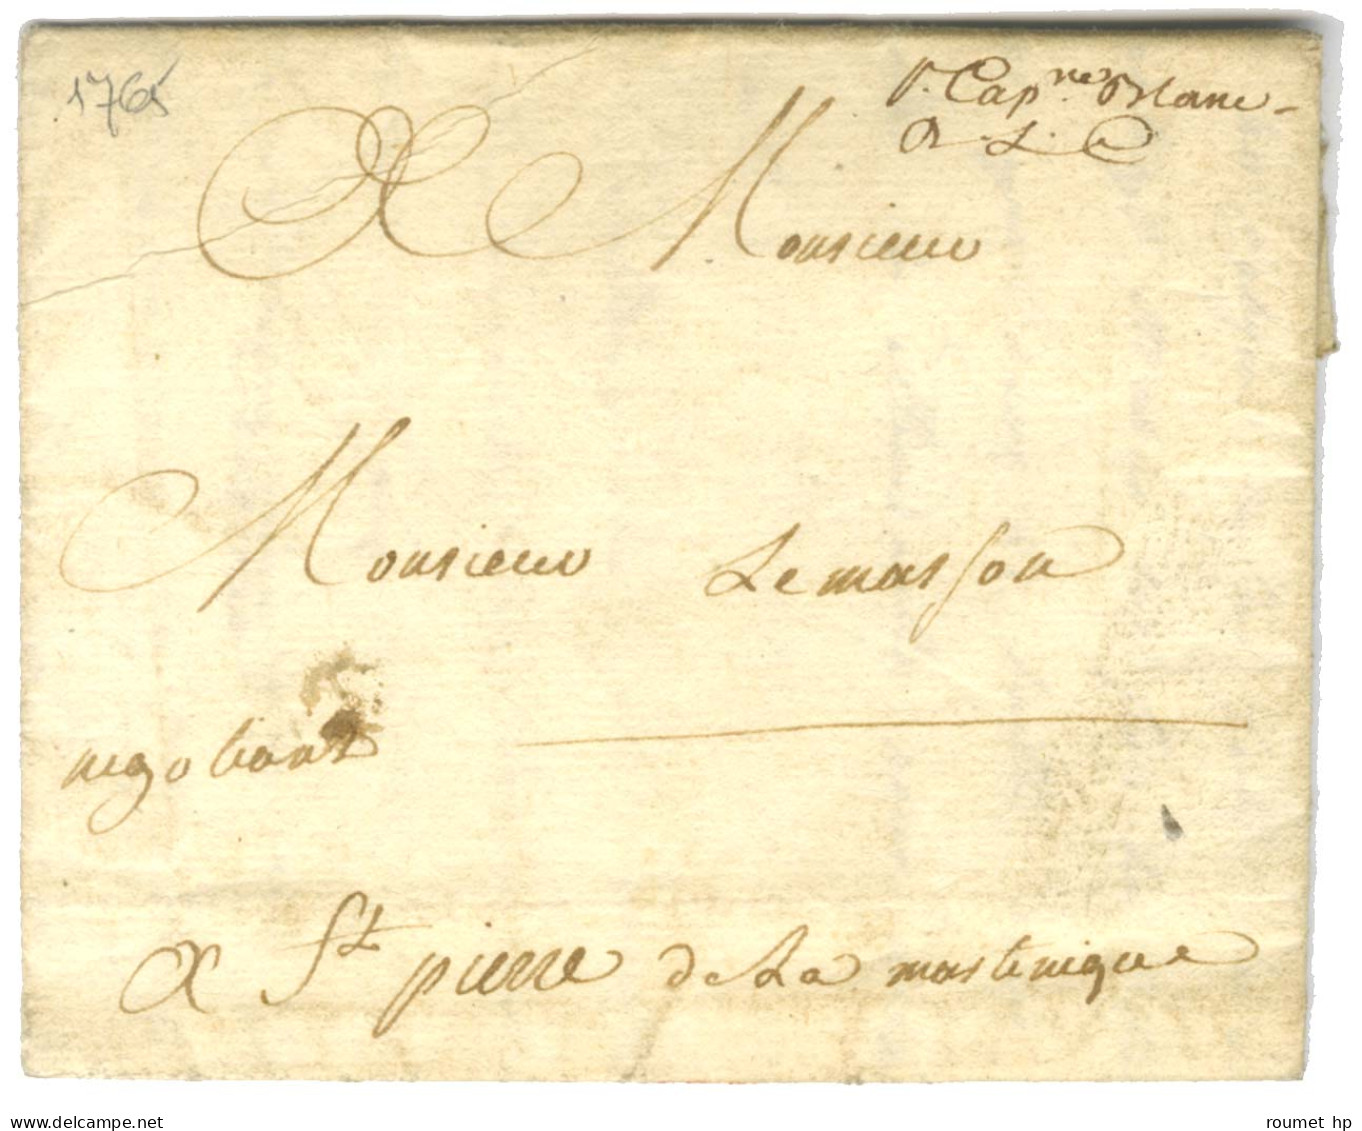 1765
P. Capne. Blanc -
Q. L. C
A Monsieur
Monsieur Lemasson
negotiant
A St pierre de La martinique
delcampe.net
roumet hp